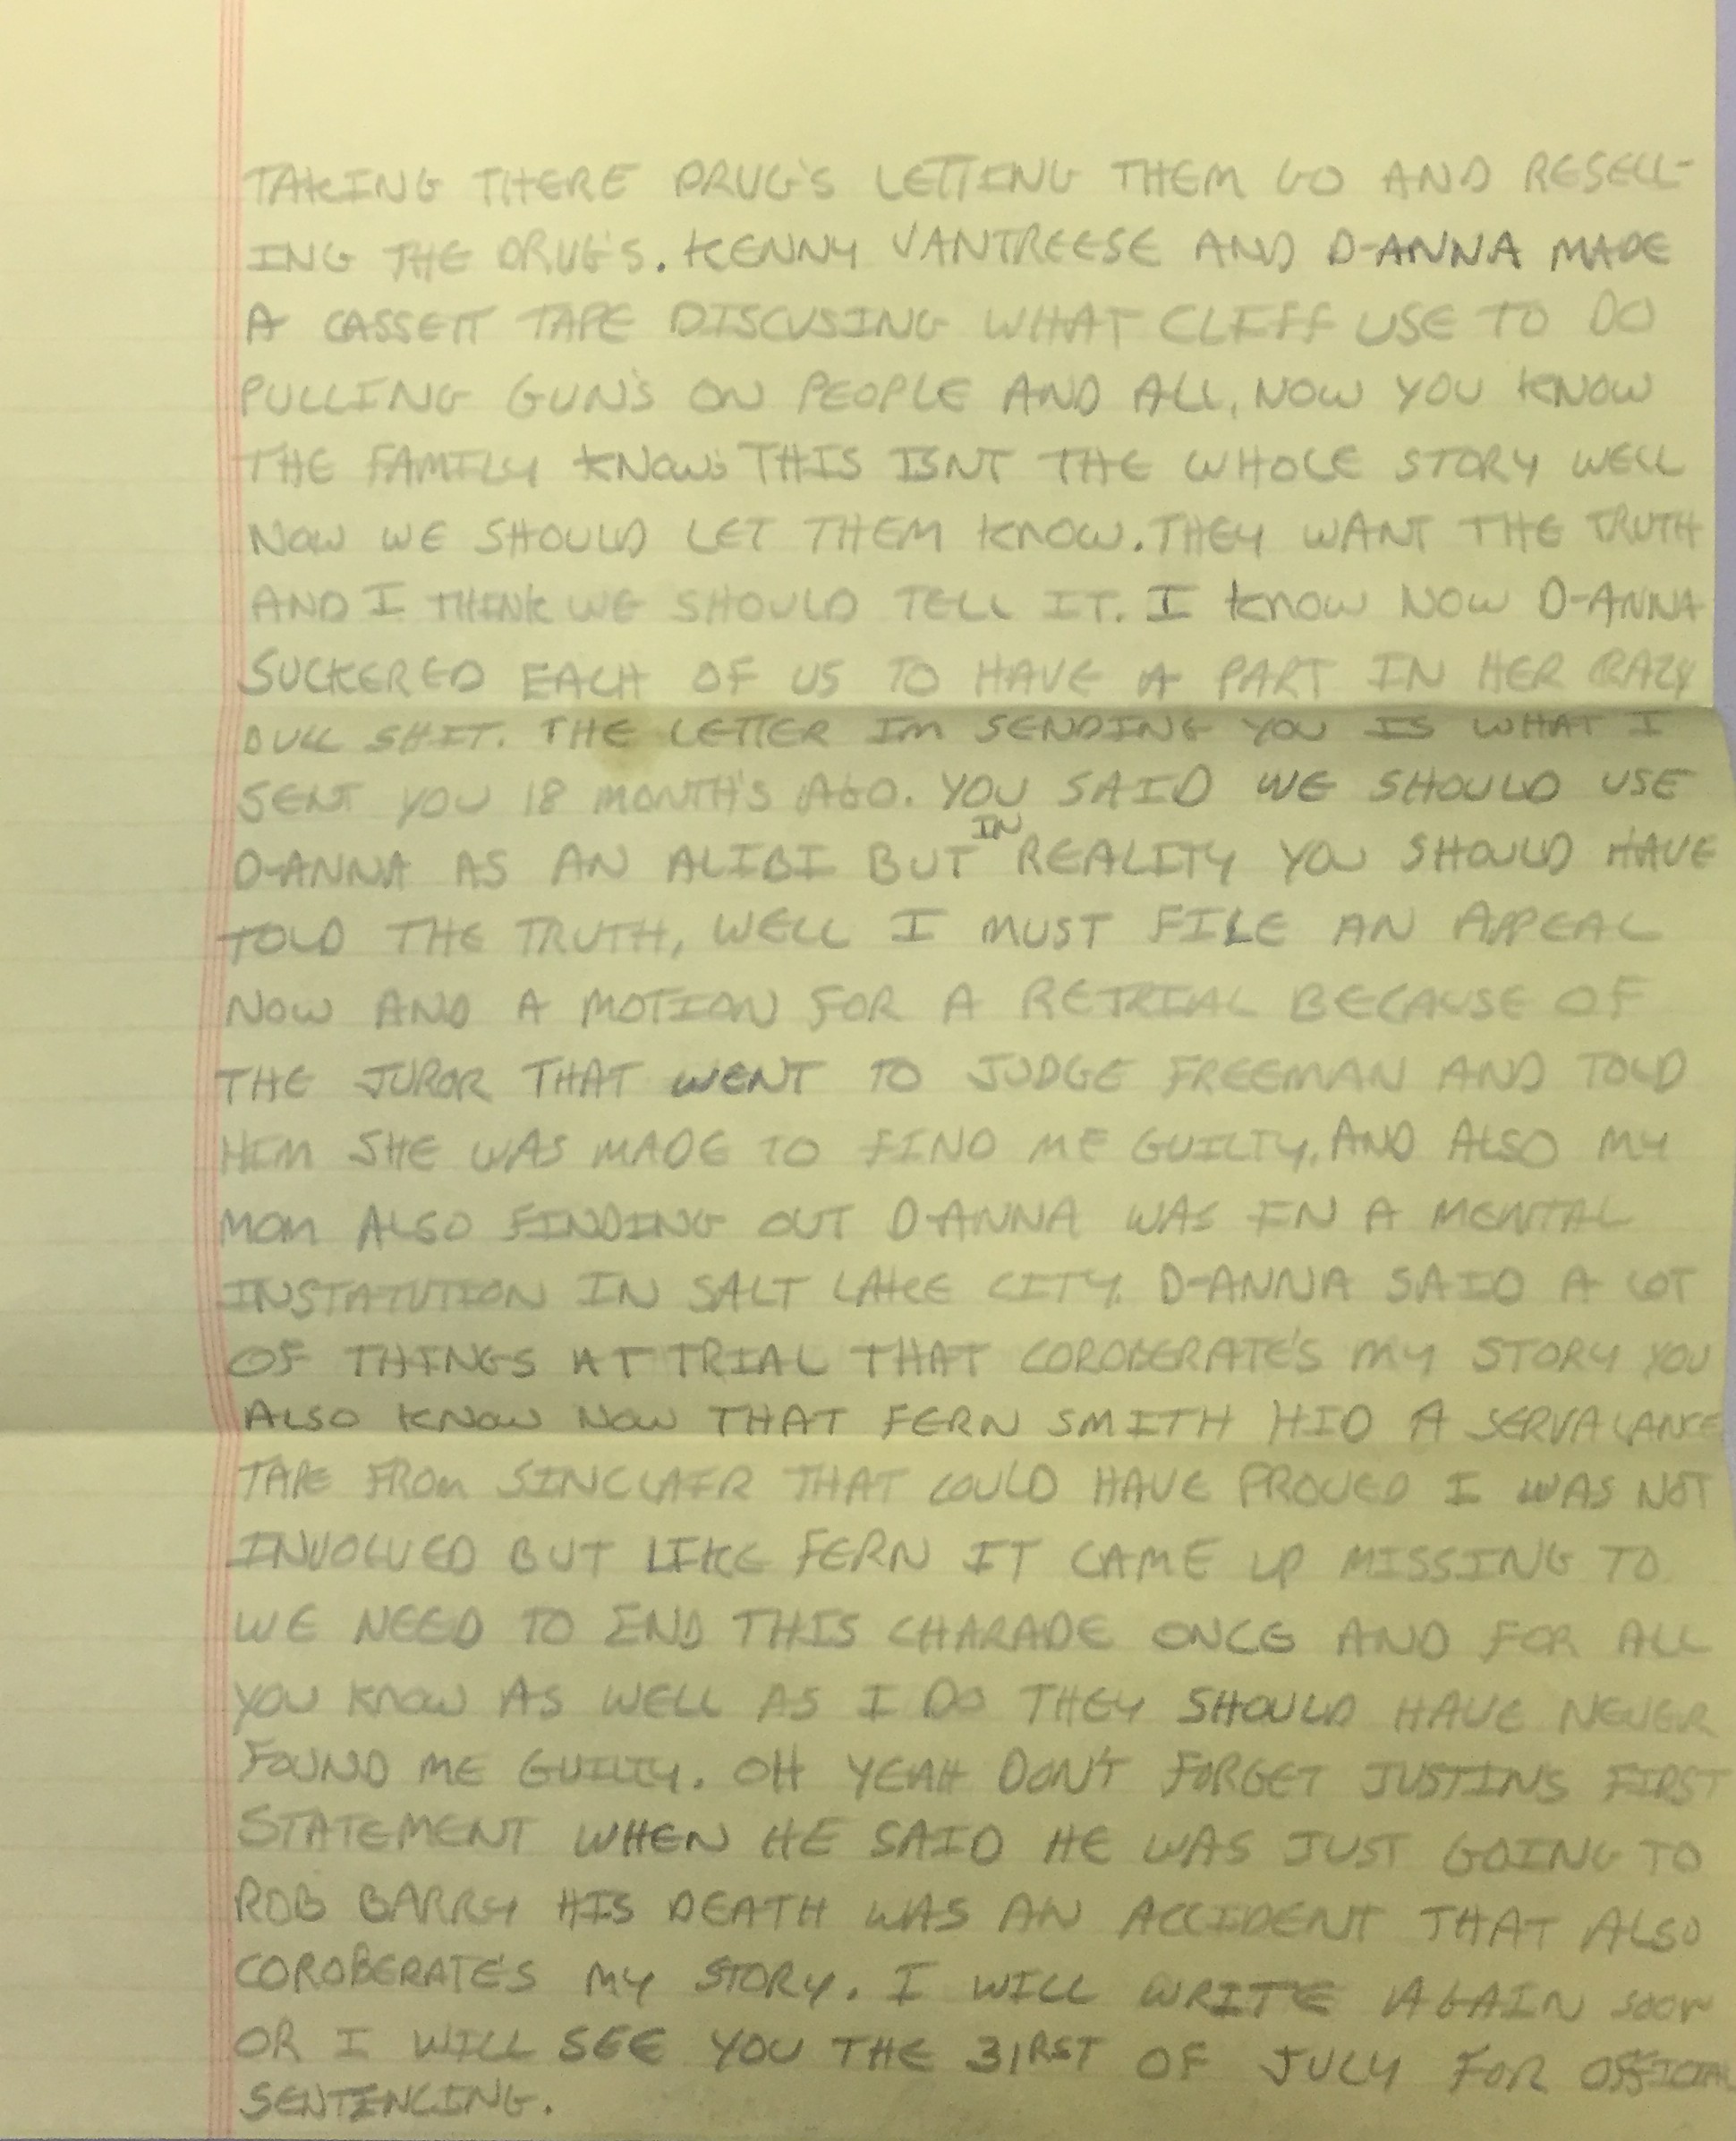 TAKING THERE DRUG'S LETTING THEM GO AND RESELL-
ING THE DRUG'S. KENNY VANTREESE AND D-ANNA MADE
A CASSETT TAPE DISCUSING WHAT CLIFF USE TO DO
PULLING GUN'S ON PEOPLE AND ALL, NOW YOU KNOW
THE FAMILY KNOWS THIS ISNT THE WHOLE STORY WELL
NOW WE SHOULD LET THEM KNOW. THEY WANT THE TRUTH
AND I THINK WE SHOULD TELL IT. I KNOW NOW D-ANNA
SUCKERED EACH OF US TO HAVE A PART IN HER CRAZY
BULL SHIT. THE LETTER IM SENDING YOU IS WHAT I
SENT YOU 18 MONTH'S AGO. YOU SAID WE SHOULD USE
D-ANNA AS AN ALIBI BUT IN REALITY YOU SHOULD HAVE
TOLD THE TRUTH, WELL I MUST FILE AN APPEAL
NOW AND A MOTION FOR A RETRIAL BECAUSE OF
THE JUROR THAT WENT TO JUDGE FREEMAN AND TOLD
HIM SHE WAS MADE TO FIND ME GUILTY. AND ALSO MY
MOM ALSO FINDING OUT D-ANNA WAS IN A MENTAL
INSTATUTION IN SALT LAKE CITY. D-ANNA SAID A LOT
OF THINGS AT TRIAL THAT COROBERATE'S MY STORY YOU
ALSO KNOW NOW THAT FERN SMITH HID A SERVALANCE
TAPE FROM SINCLAIR THAT COULD HAVE PROVED I WAS NOT
INVOLVED BUT LIKE FERN IT CAME UP MISSING TO
WE NEED TO END THIS CHARADE ONCE AND FOR ALL
YOU KNOW AS WELL AS I DO THEY SHOULD HAVE NEVER
FOUND ME GUILTY. OH YEAH DON'T FORGET JUSTIN'S FIRST
STATEMENT WHEN HE SAID HE WAS JUST GOING TO
ROB BARRY HIS DEATH WAS AN ACCIDENT THAT ALSO
COROBERATE'S MY STORY. I WILL WRITE AGAIN SOON
OR I WILL SEE YOU THE 31RST OF JULY FOR OFFICIAL
SENTENCING.